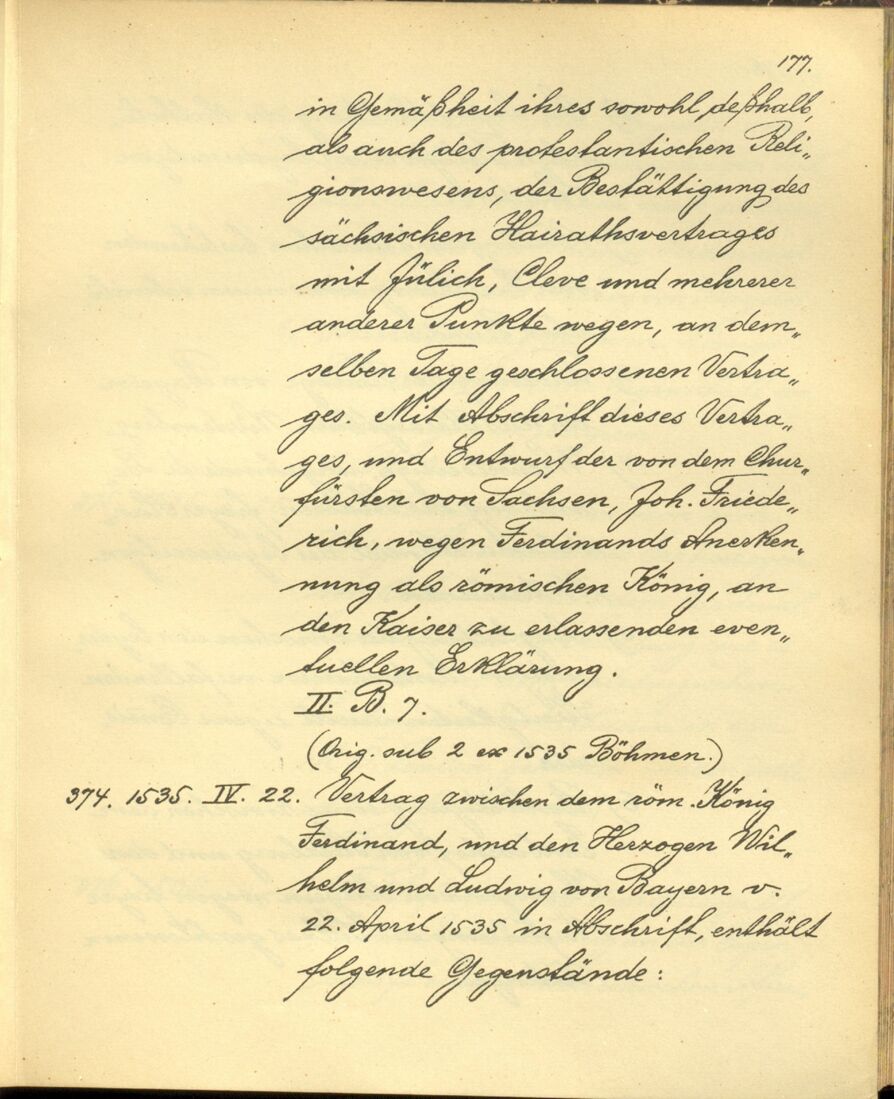 177.
in Gemäßheit ihres sowohl deßhalb,
als auch des protestantischen Reli„
gionswesens, der Bestättigung des
sächsischen Hairathsvertrages
mit Jülich, Cleve und mehrerer
anderer Punkte wegen, an dem„
selben Tage geschlossenen Vertra„
ges. Mit Abschrift dieses Vertra„
ges, und Entwurf der von dem Chur„
fürsten von Sachsen, Joh. Friede„
rich, wegen Ferdinands Anerken„
nung als römischen König, an
den Kaiser zu erlassenden even„
tuellen Erklärung.
II. B. 7.
(Orig. sub 2 ex 1535 Böhmen.)
374. 1535. IV. 22. Vertrag zwischen dem röm. König
Ferdinand, und den Herzogen Wil„
helm und Ludwig von Bayern v.
22. April 1535 in Abschrift, enthält
folgende Gegenstände: